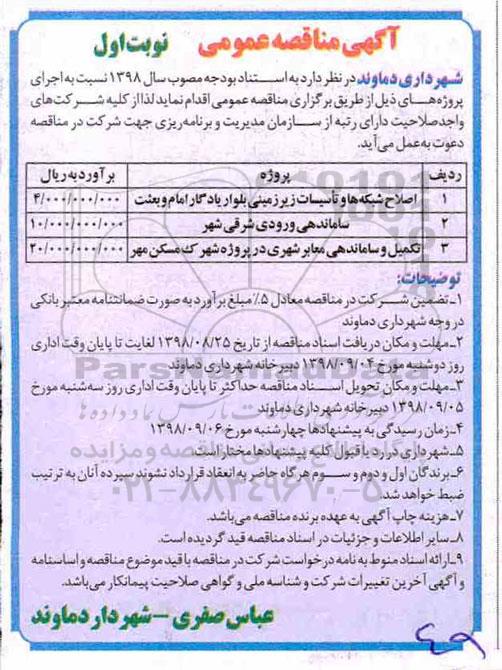 آگهی مناقصه عمومی نوبت اول
شهرداری دماوند در نظر دارد به استناد بودجه مصوب سال ۱۳۹۸ نسبت به اجرای
پروژه‌های ذیل از طریق برگزاری مناقصه عمومی اقدام نماید لذا از کلیه شرکت‌های
واجد صلاحیت دارای رتبه از سازمان مدیریت و برنامه‌ریزی جهت شرکت در مناقصه
دعوت به عمل می‌آید.
ردیف پروژه برآورد به ریال
۱ اصلاح شبکه‌ها و تأسیسات زیرزمینی بلوار یادگار امام و بعثت ۴/۰۰۰/۰۰۰/۰۰۰
۲ ساماندهی ورودی شرقی شهر ۱۰/۰۰۰/۰۰۰/۰۰۰
۳ تکمیل و ساماندهی معابر شهری در پروژه شهرک مسکن مهر ۲۰/۰۰۰/۰۰۰/۰۰۰
توضیحات:
۱ـ تضمین شرکت در مناقصه معادل ۵٪ مبلغ برآورد به صورت ضمانتنامه معتبر بانکی
در وجه شهرداری دماوند
۲ـ مهلت و مکان دریافت اسناد مناقصه از تاریخ ۱۳۹۸/۰۸/۲۵ لغایت تا پایان وقت اداری
روز دوشنبه مورخ ۱۳۹۸/۰۹/۰۴ دبیرخانه شهرداری دماوند
۳ـ مهلت و مکان تحویل اسناد مناقصه حداکثر تا پایان وقت اداری روز سه‌شنبه مورخ
۱۳۹۸/۰۹/۰۵ دبیرخانه شهرداری دماوند
۴ـ زمان رسیدگی به پیشنهادها چهارشنبه مورخ ۱۳۹۸/۰۹/۰۶
۵ـ شهرداری در رد یا قبول کلیه پیشنهادها مختار است.
۶ـ برندگان اول و دوم و سوم هرگاه حاضر به انعقاد قرارداد نشوند سپرده آنان به ترتیب
ضبط خواهد شد.
۷ـ هزینه چاپ آگهی به عهده برنده مناقصه می‌باشد.
۸ـ سایر اطلاعات و جزئیات در اسناد مناقصه قید گردیده است.
۹ـ ارائه اسناد منوط به نامه درخواست شرکت در مناقصه با قید موضوع مناقصه و اساسنامه
و آگهی آخرین تغییرات شرکت و شناسه ملی و گواهی صلاحیت پیمانکار می‌باشد.
عباس صفری - شهردار دماوند
۰۲۱-۸۸۳۴۹۶۷۰-۵